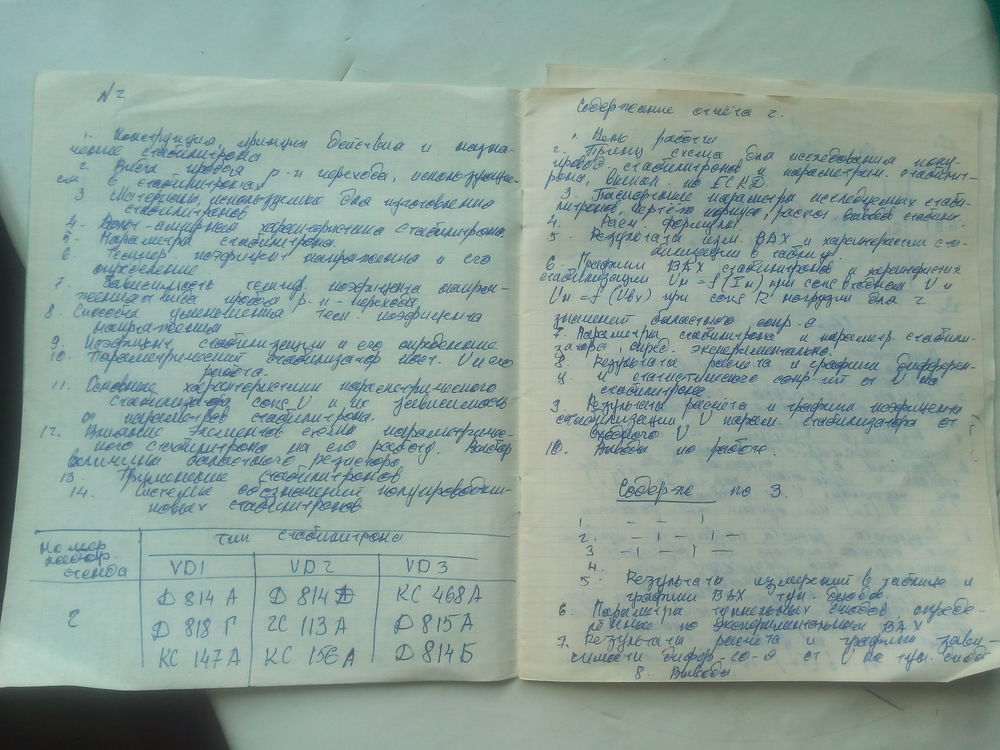 N 2
1. Конструкция, принцип действия и назна-
чение стабилитрона
2. Виды пробоя p-n перехода, использующие-
ся в стабилитронах
3 Материалы, используемые для изготовления
стабилитронов
4. Вольт-амперная характеристика стабилитрона.
5. Параметры стабилитрона.
6. Темпер. коэфициент напряжения и его
определение
7. Зависимость темпер. коэфицента напря-
жения от типа пробоя p-n-перехода.
8. Способы уменьшения темп. коэфицента
напряжения
9. Коэфициент стабилизации и его определение
10. Параметрический стабилизатор пост. U и его
работа.
11. Основные характеристики параметрического
стабилизатора U и их зависимость
от параметров стабилитрона.
12. Влияние элементов схемы параметриче-
ного стабилитрона на его работу. Выбор
величины балластного резистора
13. Применение стабилитронов
14. Система обозначений полупроводни-
ковых стабилитронов
Номер
стенда
тип стабилитрона
VD1 VD2 VD3
2
Д 814 А Д 814 Д КС 468 А
Д 818 Г 2С 113 А Д 815 А
КС 147 А КС 156 А Д 814 Б
Содержание отчёта 2.
1. Цель работы
2. Принц. схема для исследования полу-
провод. стабилитронов и параметрич. стабилит-
рона, выполн. по ЕСКД.
3. Паспортные параметры исследуемых стаби-
литронов, чертёж корпуса, распол. выводов стабил.
4. Расч. формулы
5. Результаты изм. ВАХ и характеристик ста-
билизации в таблиц.
6. Графики ВАХ стабилитронов и характеристик
стабилизации Uн = f (Iн) при const входном U и
Uн = f (Uвх) при const R нагрузки для 2
значений баластного сопр-я
7. Параметры стабилитрона и параметр. стабили-
затора, опред. экспериментально.
8. Результаты расчёта и графики дифферен-
ц. и статистического сопр-ий от U на
стабилитроне
9. Результаты расчёта и графики коэфицента
стабилизации U парам. стабилизатора от
входного U
10. Выводы по работе.
Содерж по 3.
1. — — 1 —
2. — 1 — 1 —
3 — 1 — 1 —
4.
5. Результаты измерений в таблице и
графики ВАХ тун. диодов.
6. Параметры туннельных диодов, опреде-
лённые по экспериментальной ВАХ
7. Результаты расчёта и графики зави-
симости дифер. со-я от U на тун. диод
8. Выводы.